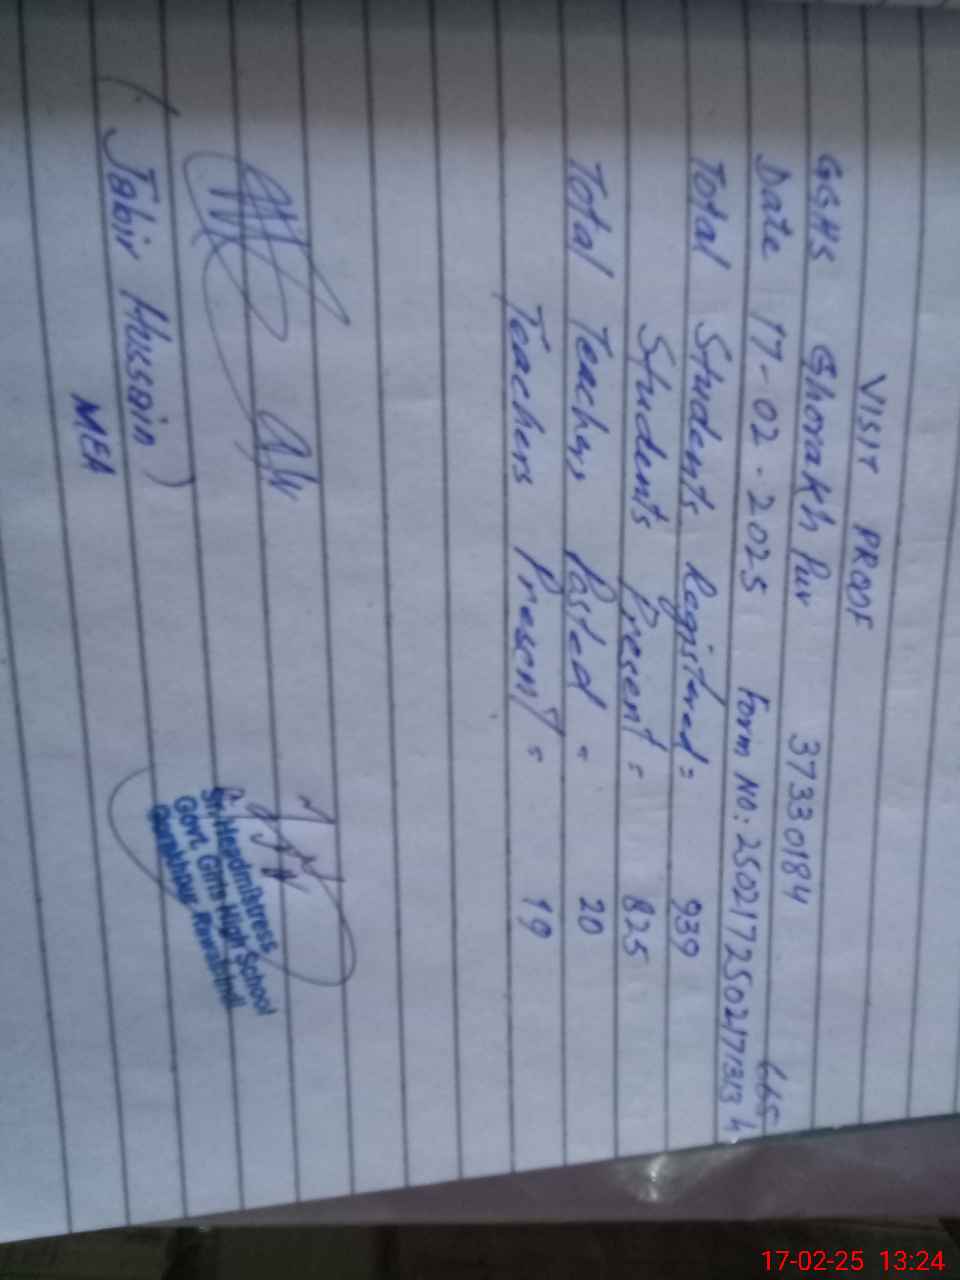 VISIT PROOF
GGHS Ghorakh Pur 37330184
Date 17-02-2025 Form NO: 25021725021713134
Total Students Registered = 939
Students Present = 825
Total Teachers Posted = 20
Teachers Present = 19
(Jabir Hussain)
MEA
Sr. Headmistress
Govt. Girls High School
Gorakhpur Rawalpindi
17-02-25 13:24